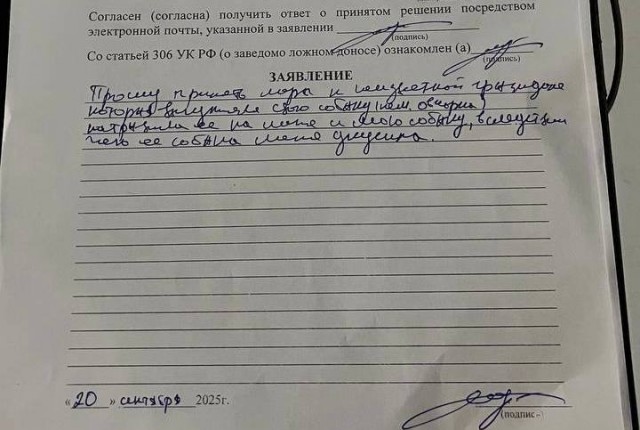 Согласен (согласна) получить ответ о принятом решении посредством
электронной почты, указанной в заявлении
(подпись)
Со статьей 306 УК РФ (о заведомо ложном доносе) ознакомлен (а)
(подпись)
ЗАЯВЛЕНИЕ
Прошу принять меры к неизвестной гражданке
которая выгуляла свою собаку (нем. овчарка)
натравила ее на меня и мою собаку, вследствии
чего ее собака меня укусила.
«20» сентября 2025г.
(подпись)